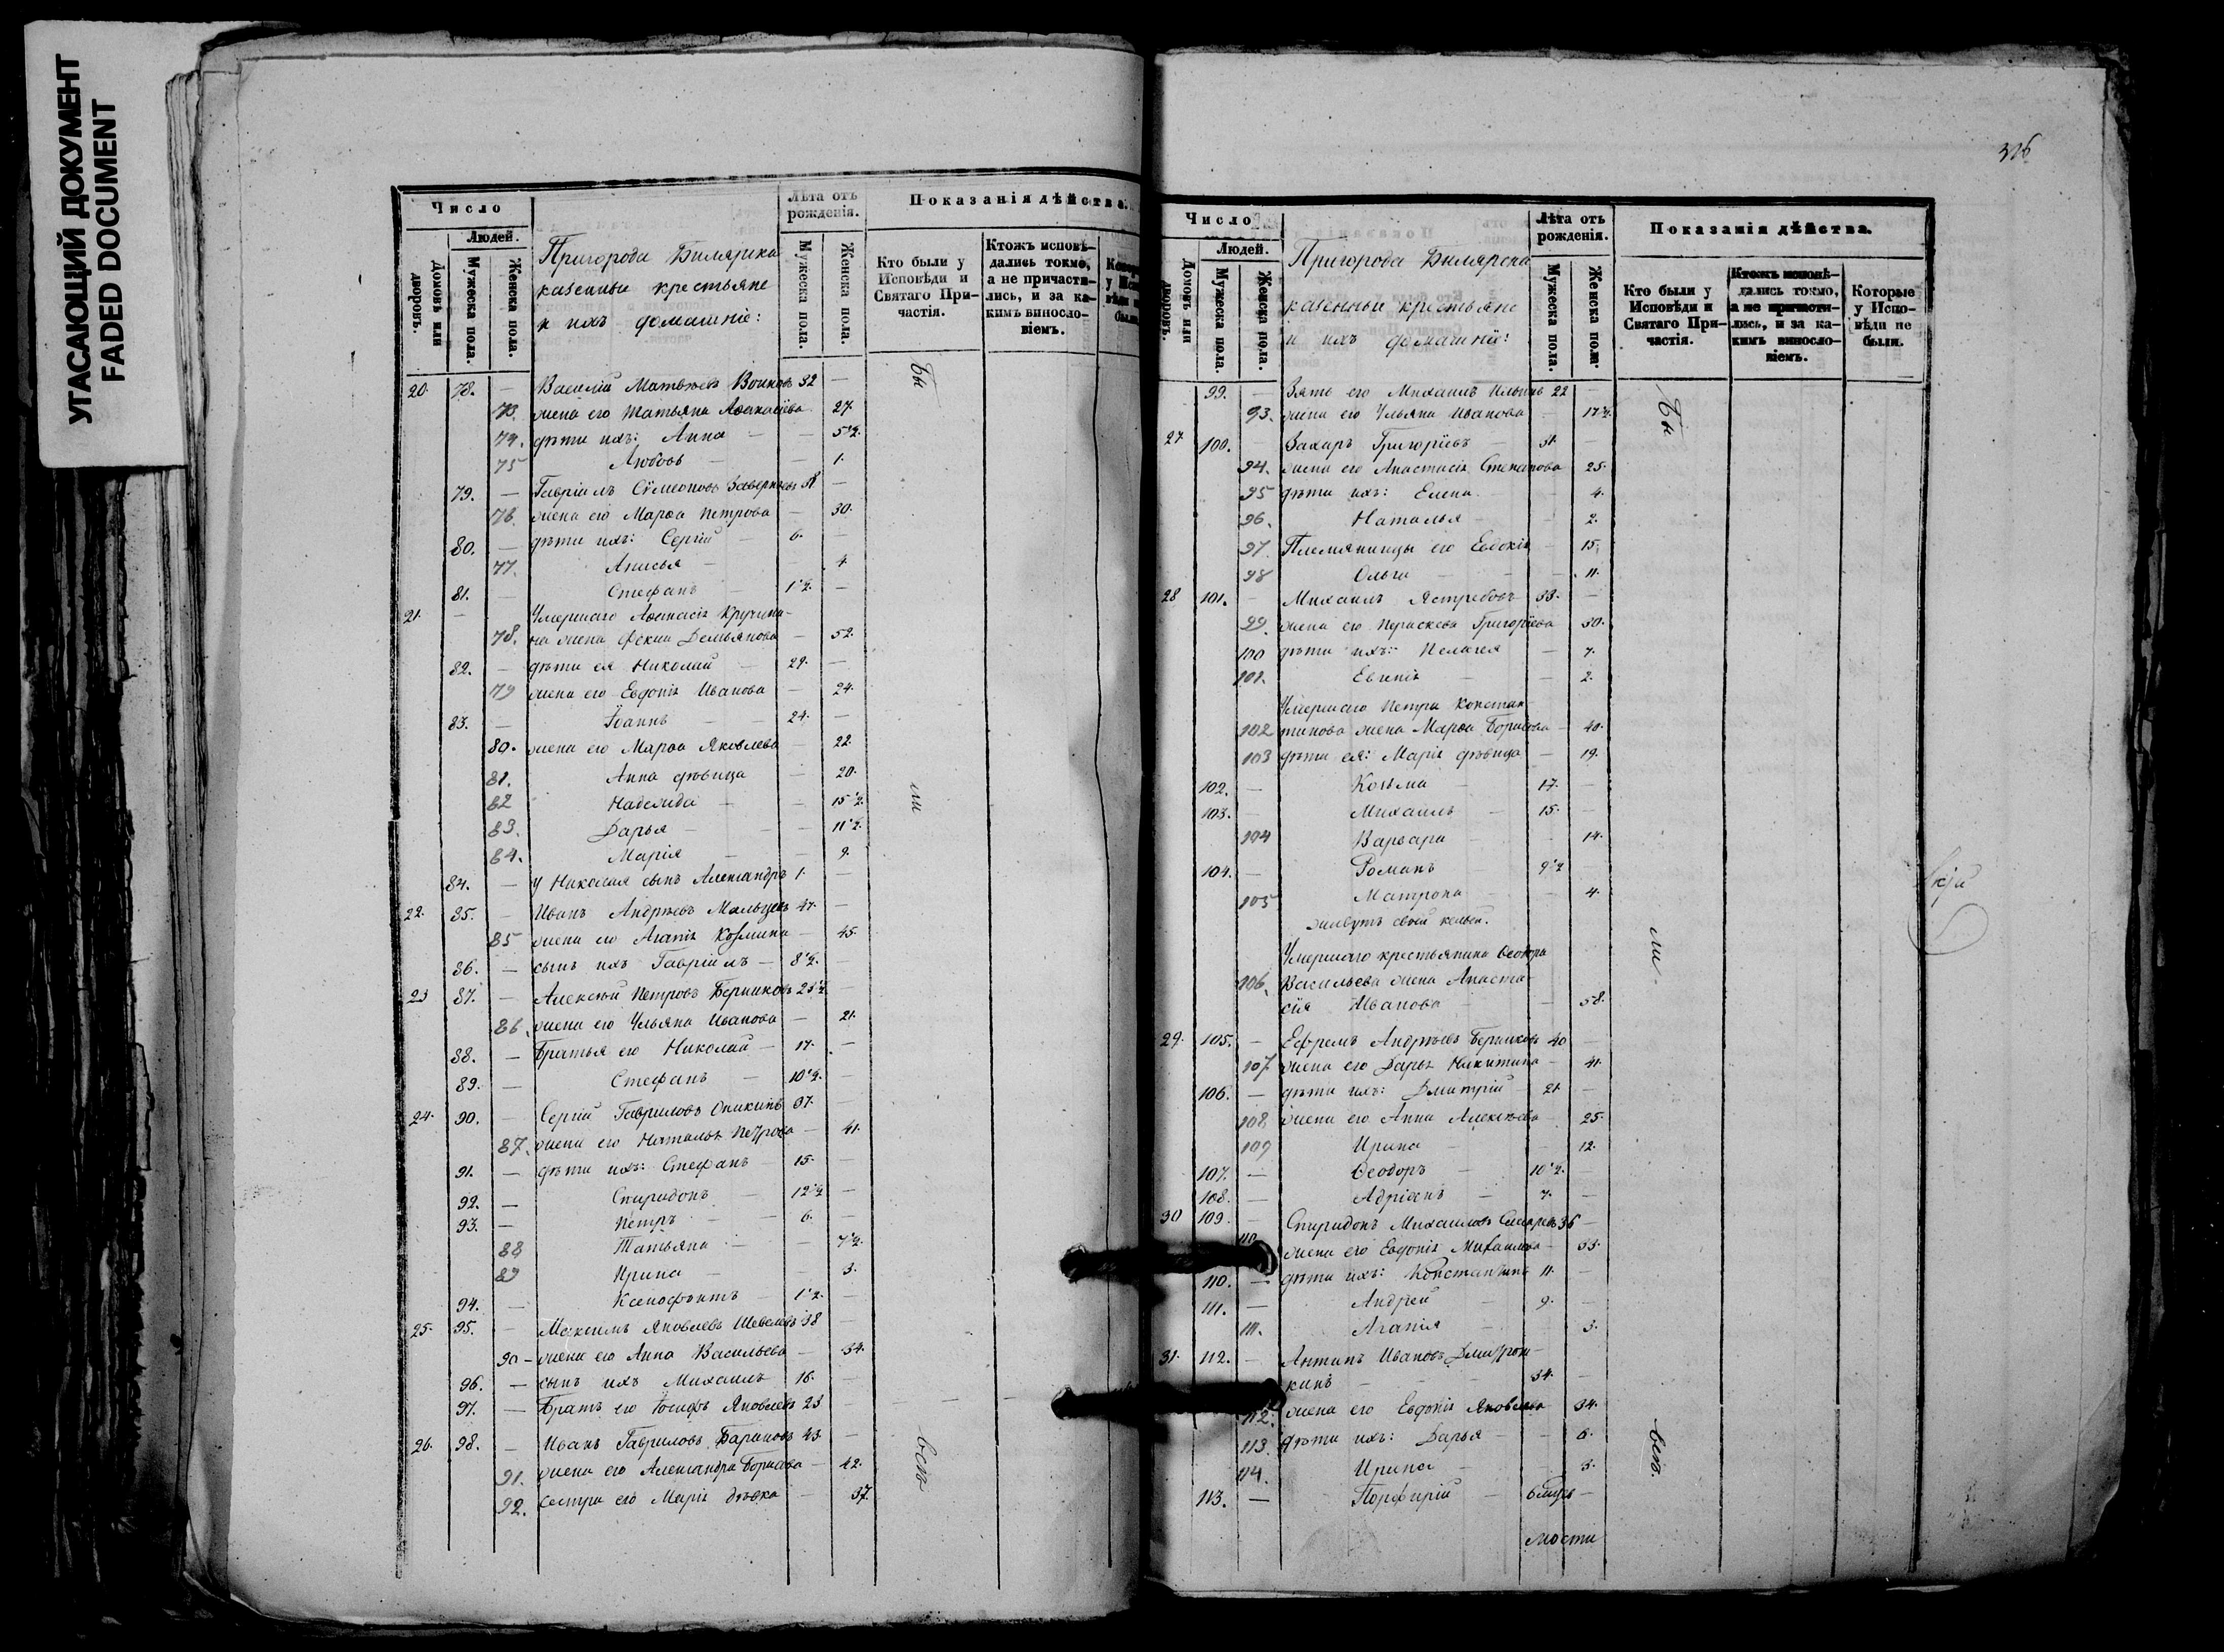 УГАСАЮЩИЙ ДОКУМЕНТ
FADED DOCUMENT
Число
Людей.
Домовъ или дворовъ.
Мужеска пола.
Женска пола.
Пригорода Билярска
казенные крестьяне
и ихъ домашніе:
Лѣта отъ рожденія.
Мужеска пола.
Женска пола.
Показанія дѣйства.
Кто были у Исповѣди и Святаго Причастія.
Ктожъ исповѣдались токмо, а не причастились, и за какимъ винословіемъ.
20 78. — Василій Матвѣевъ Воиновъ 32 —
73. жена его Татьяна Аѳанасіева 27.
74. дѣти ихъ: Анна — — 5½.
75 Любовь — — 1.
79. — Гавріилъ Сѵмеоновъ 38 —
76. жена его Марѳа Петрова — 30.
80. — дѣти ихъ: Сергій — 6. —
77. Анисья — — 4
81. — Стефанъ — 1½. —
21. — Умершаго Аѳанасія Кручини-
78. на жена Ѳекла Демьянова — 52.
82. — дѣти ея Николай — 29. —
79 жена его Евдокія Иванова — 24.
83. — Іоаннъ — 24. —
80. жена его Марѳа Яковлева — 22.
81. Анна дѣвица — 20.
82 Надежда — — 15½
83. Дарья — — 11½.
84. Марія — — 9.
84. — у Николая сынъ Александръ 1. —
22. 85. — Иванъ Андреевъ Мальцевъ 47. —
85 жена его Агапія Козмина — 45.
86. — сынъ ихъ Гавріилъ — 8½. —
23 87. — Алексѣй Петровъ Берниковъ 23½ —
86. жена его Ульяна Иванова — 21.
88. — Братья его Николай — 17. —
89. — Стефанъ — 10½. —
24. 90. — Сергій Гавриловъ Оникинъ 37. —
87. жена его Наталья Петрова — 41.
91. — дѣти ихъ: Стефанъ 15. —
92. — Спиридонъ — 12½ —
93. — Петръ — 6. —
88 Татьяна — — 7½.
89 Ирина — — 3.
94. — Ксенофонтъ — 1½. —
25. 95. — Максимъ Яковлевъ Шевелевъ 38 —
90 — жена его Анна Васильева — 34.
96. — сынъ ихъ Михаилъ 16. —
97. — Братъ его Іосифъ Яковлевъ 23 —
26. 98. — Иванъ Гавриловъ Бариновъ 43. —
91. жена его Александра Борисова — 42.
92. сестра его Марія дѣвка — 37.
Бы
ли
всѣ
326
Число
Людей.
Домовъ или дворовъ.
Мужеска пола.
Женска пола.
Пригорода Билярска
казенные крестьяне
и ихъ домашніе:
Лѣта отъ рожденія.
Мужеска пола.
Женска пола.
Показанія дѣйства.
Кто были у Исповѣди и Святаго Причастія.
Ктожъ исповѣдались токмо, а не причастились, и за какимъ винословіемъ.
Которые у Исповѣди не были.
99. — Зять его Михаилъ Ильинъ 22 —
93. жена его Ульяна Иванова — 17½.
27. 100. — Захаръ Григоріевъ — 31. —
94. жена его Анастасія Степанова 25.
95 дѣти ихъ: Елена — 4.
96. Наталья — 2.
97. Племянницы его Евдокія — 15.
98 Ольга — — 11.
28 101. — Михаилъ Ястребовъ 33. —
99. жена его Параскева Григоріева 30.
100 дѣти ихъ: Пелагея — 7.
101. Евгенія — — 2.
Умершаго Петра Констан
102 тинова жена Марѳа Борисова — 40.
103 дѣти ея: Марія дѣвица 19.
102. — Козьма — 17. —
103. — Михаилъ — 15. —
104 Варвара — 14.
104. — Романъ 9½ —
105 Матрона — — 4.
живутъ своей кельей.
Умершаго крестьянина Ѳеодора
106. Васильева жена Анаста
сія Иванова — — 58.
29. 105. — Ефремъ Андреевъ Берниковъ 40 —
107. жена его Дарья Никитина — 41.
106. — дѣти ихъ: Дмитрій 21 —
108. жена его Анна Алексѣева — 25.
109 Ирина — 12.
107. — Ѳеодоръ — 10½. —
108. — Адріанъ — 7. —
30 109. — Спиридонъ Михаиловъ 36 —
110. жена его Евдокія Михаилова — 33.
110. — дѣти ихъ: Константинъ 11. —
111. — Андрей — 9. —
111. Агапія — 3.
31. 112. — Антипъ Ивановъ Дмитрош-
кинъ — 34. —
112. жена его Евдокія Яковлева 34.
113. дѣти ихъ: Дарья — — 6.
114. Ирина — — 3.
113. — Порфирій — 6 мцъ —
Бы
ли
всѣ.
мости